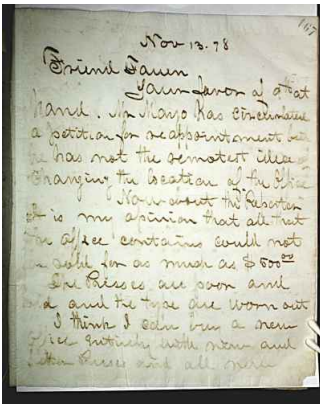 167
Nov 13. 78
Friend
Your favor of 9th at
hand. Mr Mayo has circulated
a petition for reappointment but
he has not the remotest idea of
changing the location of the Office
Now about the Reporter
It is my opinion that all that
the office contains could not
be sold for as much as $500 00
The Presses are poor and
old and the type are worn out
I think I can buy a new
office entirely with new and
Presses and all new